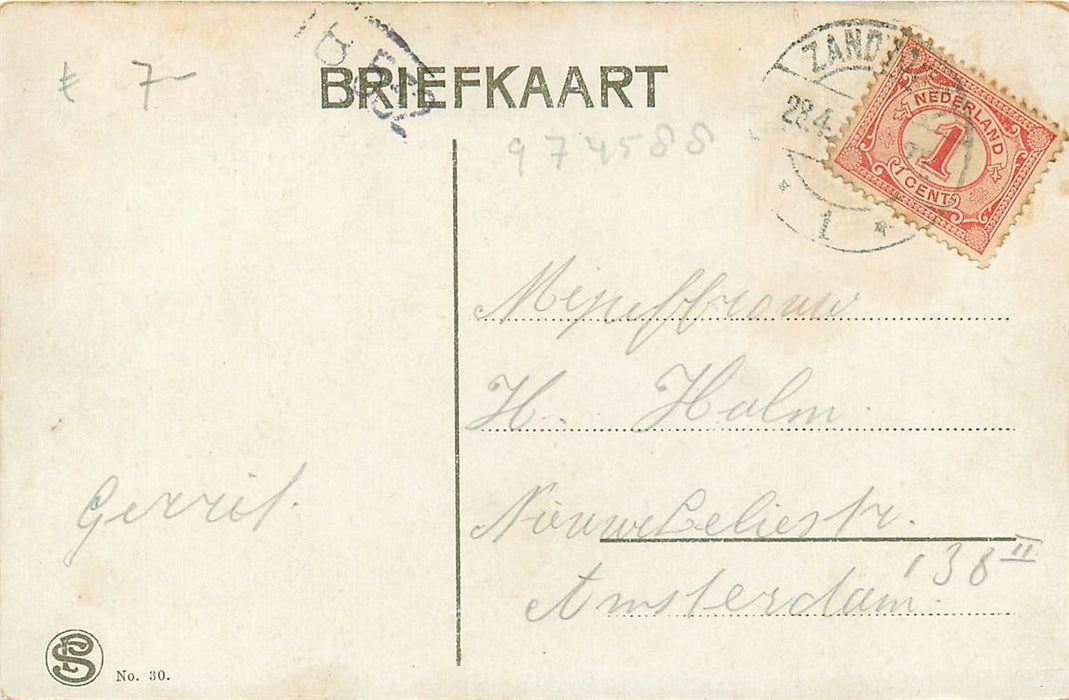 € 7-
BRIEFKAART
974588
ZAND
28.4
1
NEDERLAND
1
CENT
Mejueffrouw
H. Halm.
NieuweLeliestr.
138 II
Amsterdam.
Gerrit.
No. 30.